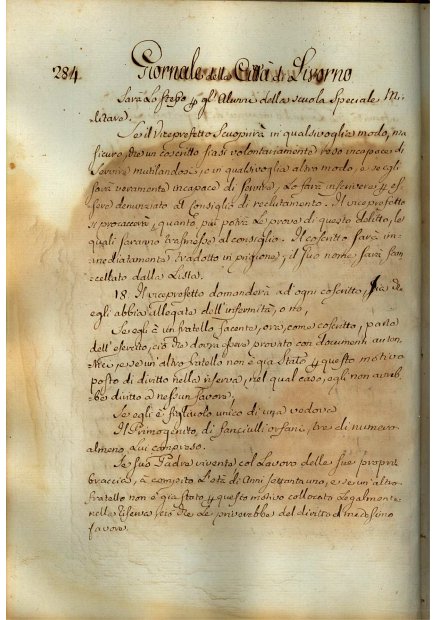 284. Giornale della Città di Livorno
Sarà lo stesso p gl'Alunni della scuola Speciale Mi-
litare.
Se il Viceprefetto Scuoprirà in qualsivoglia modo, ma
sicuro, che un coscritto siasi volontariamente reso incapace di
servire mutilandosi, o in qualsivoglia altro modo, e se egli
sarà veramente incapace di servire, lo farà inscrivere p es-
sere denunziato al Consiglio di reclutamento. Il viceprefetto
si procaccerà, quanto più potrà le prove di questo delitto, le
quali saranno trasmesse al consiglio. Il coscritto sarà im-
mediatamente tradotto in prigione, il suo nome, sarà can-
cellato dalla Lista.
18. Il viceprefetto domanderà ad ogni coscritto, sia che
egli abbia allegate dell'infermità, o no,
Se egli è un fratello facente, ora, come coscritto, parte
dell'esercito, ciò che dovrà essere provato con documenti auten-
tici, e se un'altro fratello non è già stato p questo motivo
posto di diritto nella riserva, nel qual caso, egli non avreb-
be diritto a nessun favore,
Se egli è figliuolo unico di una vedova
Il Primogenito di fanciulli orfani, tre di numero
almeno, lui compreso.
Se suo Padre vivente col Lavoro delle sue proprie
braccia, à compito l'età di Anni settantuno, e se un'altro
fratello non è già stato p questo motivo collocato legalmente
nella Riserva ciò che le priverebbe del diritto al medesimo
favore.